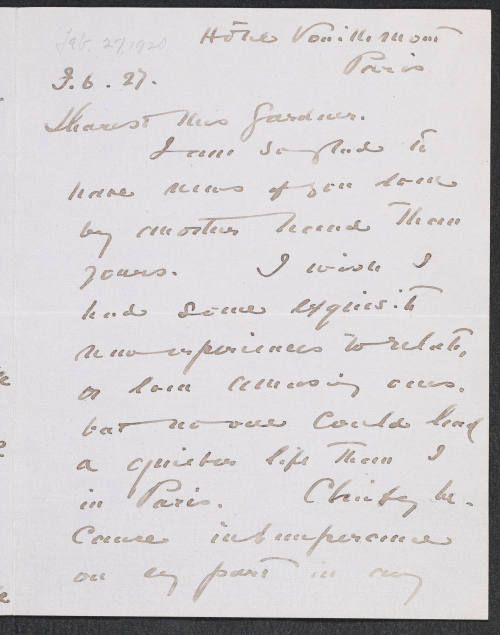 Feb. 27, 1920
Hôtel Vouillemont
Paris
F. 6. 27.
Dearest Mrs Gardner.
I am so glad to
have news of you
by another hand than
yours. I wish I
had some exquisite
new experiences to relate,
or amusing ones.
but no one could lead
a quieter life than I
in Paris. Chiefly be-
cause intemperance
on my part in any